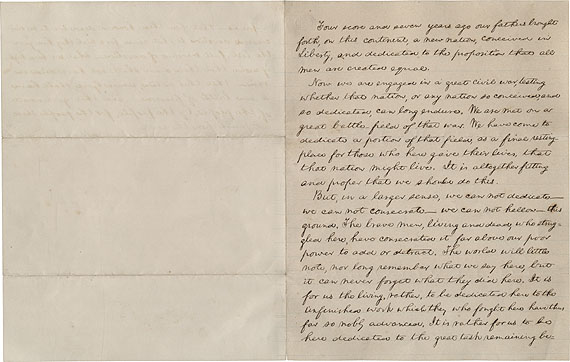 Four score and seven years ago our fathers brought
forth, on this continent, a new nation, conceived in
liberty, and dedicated to the proposition that all
men are created equal.
Now we are engaged in a great civil war, testing
whether that nation, or any nation so conceived, and
so dedicated, can long endure. We are met on a
great battle field of that war. We have come to
dedicate a portion of that field, as a final resting-
place for those who here gave their lives, that
that nation might live. It is altogether fitting
and proper that we should do this.
But, in a larger sense, we can not dedicate—
we can not consecrate— we can not hallow— this
ground. The brave men, living and dead, who strug-
gled here, have consecrated it far above our poor
power to add or detract. The world will little
note, nor long remember what we say here, but
it can never forget what they did here. It is
for us the living, rather, to be dedicated here to the
unfinished work which they who fought here have thus
far so nobly advanced. It is rather for us to be
here dedicated to the great task remaining be-